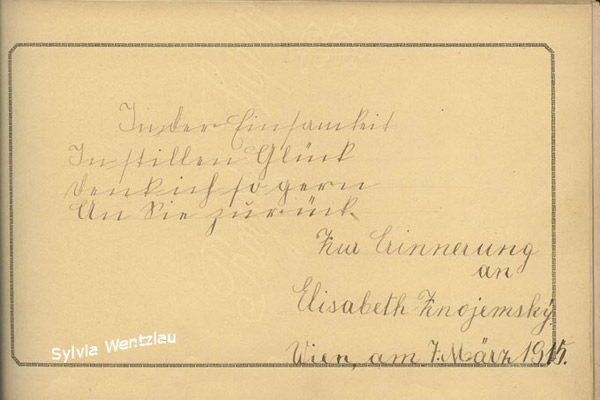 In der Einsamkeit
In stillen Glück
denk ich so gern
An Sie zurück
Zur Erinnerung
an
Elisabeth Znojemský
Wien, am 7. März 1915.
Sylvia Wentzlau